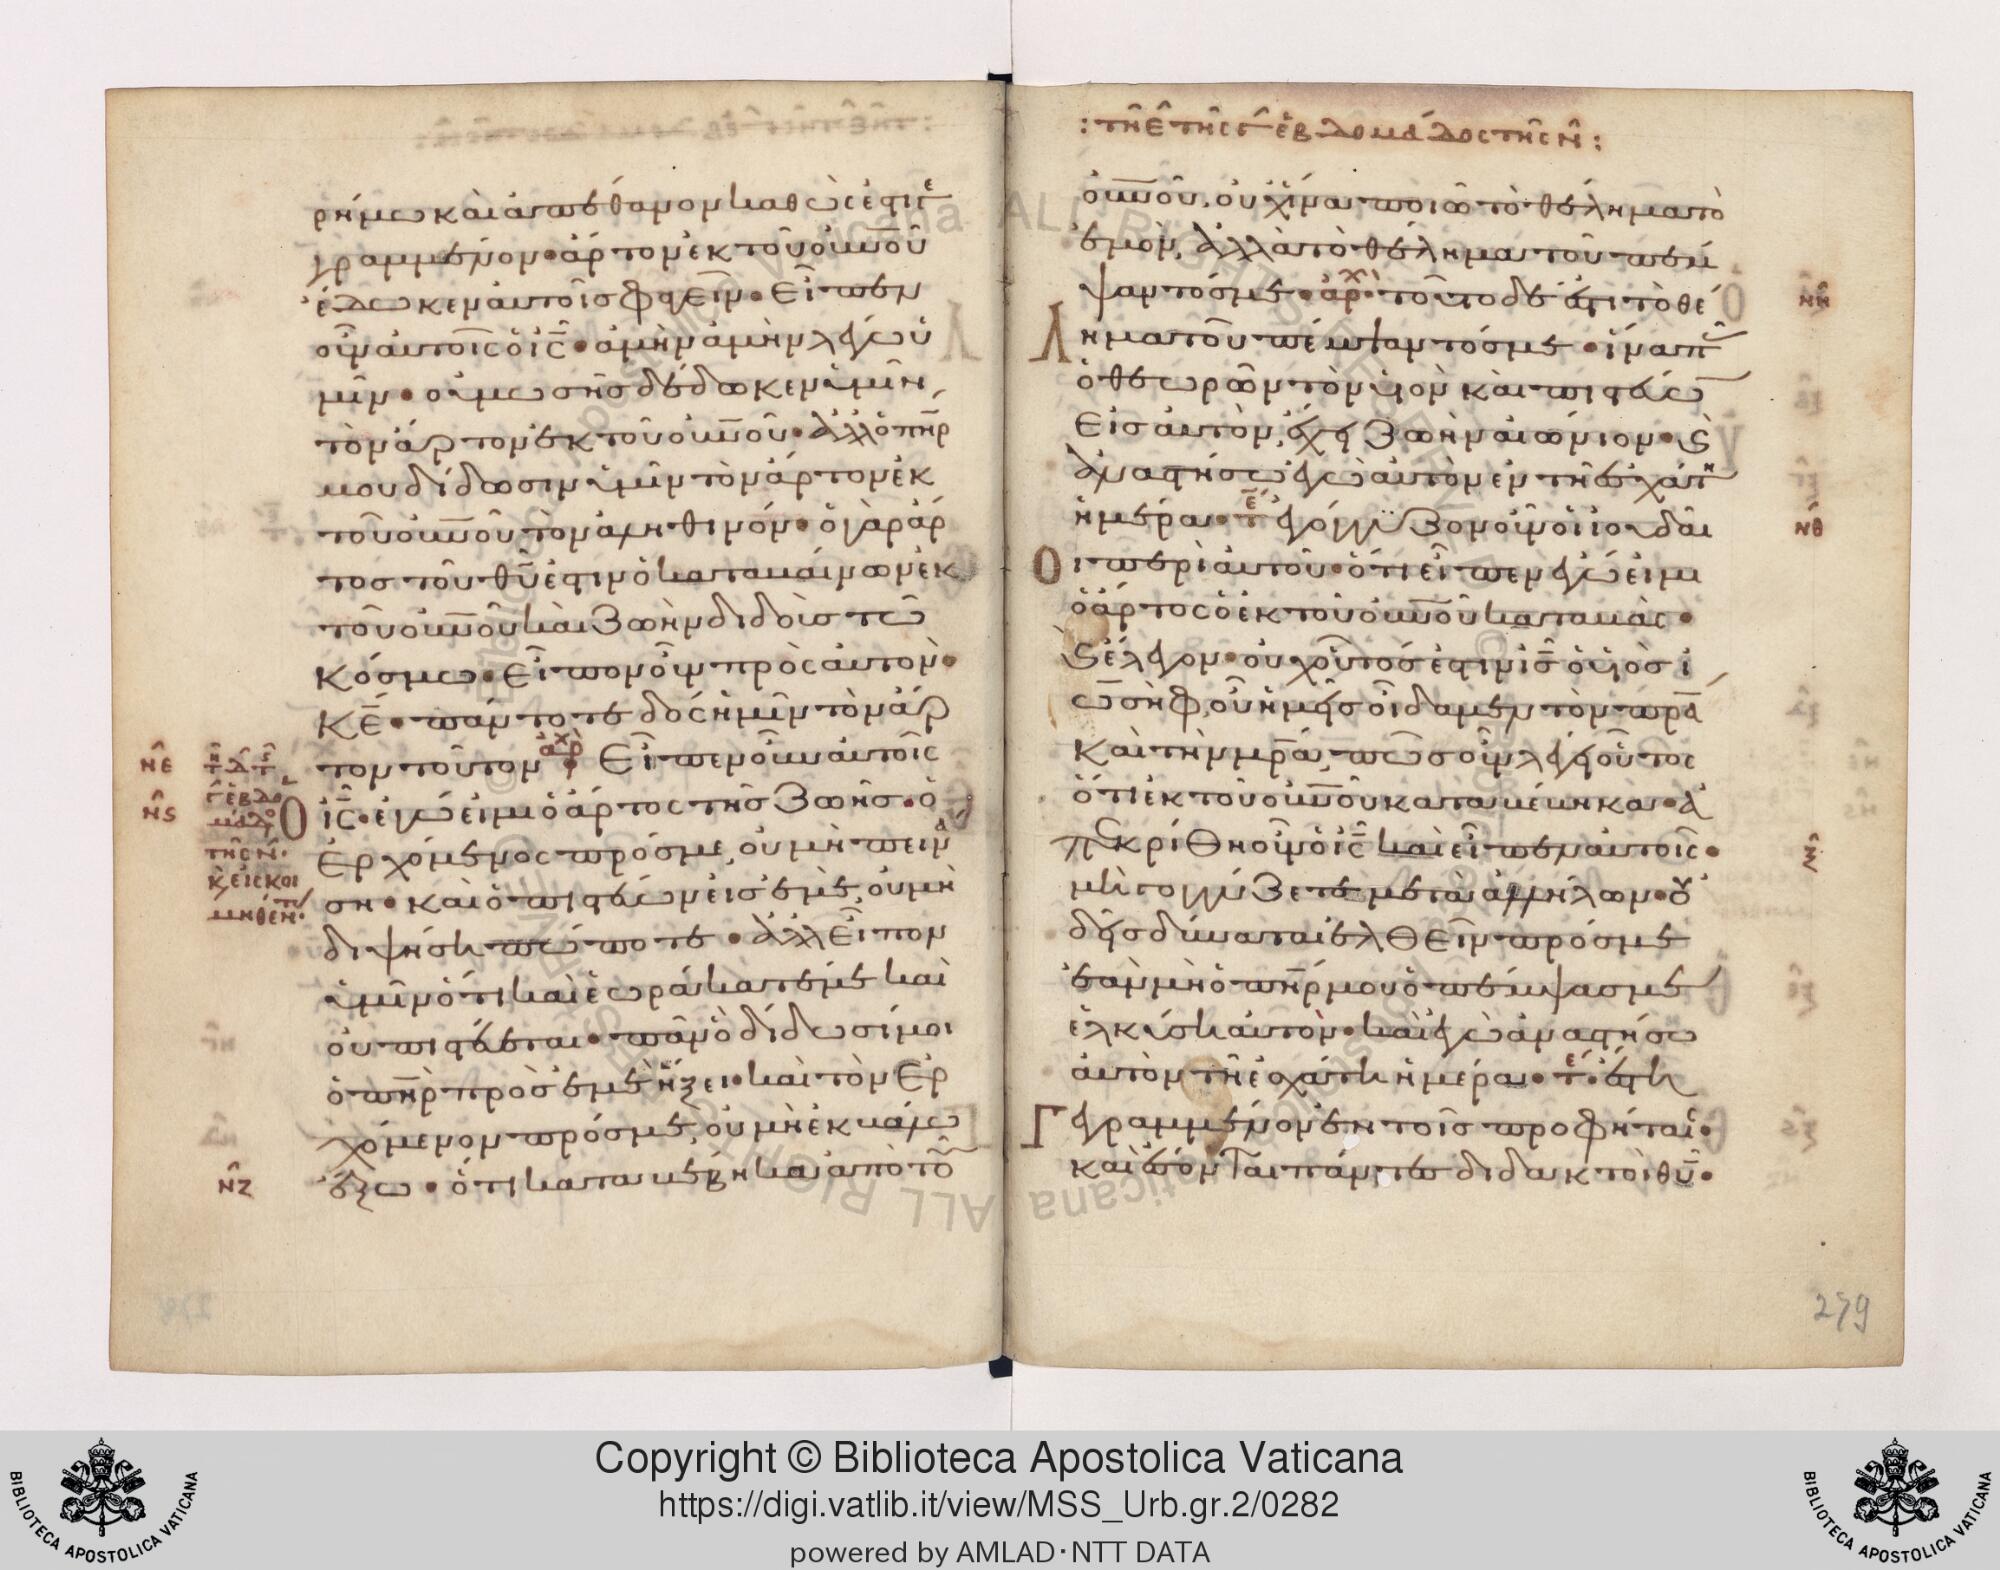 ρήμω καὶ ἀπέθανον καθώς ἐστι
γραμμένον· ἄρτον ἐκ τοῦ οὐνοῦ
ἔδωκεν αὐτοῖς φαγεῖν· Εἶπεν
οὖν αὐτοῖς ὁ ις· ἀμὴν ἀμὴν λέγω ὑ
μῖν· οὐ μωσῆς δέδωκεν ὑμῖν
τὸν ἄρτον ἐκ τοῦ οὐνοῦ· ἀλλ ὁ πηρ
μου δίδωσιν ὑμῖν τὸν ἄρτον ἐκ
τοῦ οὐνοῦ τὸν ἀληθινόν· ὁ γὰρ ἄρ
τος τοῦ θυ ἐστιν ὁ καταβαίνων ἐκ
τοῦ οὐνοῦ καὶ ζωὴν διδοὺς τῶ
κόσμω· Εἶπον οὖν πρὸς αὐτόν·
κε· πάντοτε δὸς ἡμῖν τὸν ἄρ
τον τοῦτον· ἀρχ Εἶπεν οὖν αὐτοῖς
ὁ ις· ἐγώ εἰμι ὁ ἄρτος τῆς ζωῆς· ὁ
ἐρχόμενος πρός με, οὐ μὴ πεινά
ση· καὶ ὁ πιστεύων εἰς ἐμὲ, οὐ μὴ
διψήση πώποτε· ἀλλ Εἶπον
ὑμῖν ὅτι καὶ ἑωράκατέ με καὶ
οὐ πιστεύεται· πᾶν ὃ δίδωσί μοι
ὁ πηρ πρὸς ἐμὲ ἥξει· καὶ τὸν Ἐρ
χόμενον πρός με, οὐ μὴ ἐκβάλω
ἔξω· ὅτι καταβέβηκα ἀπὸ τοῦ
νε
νς
νζ
: τῆ ε τῆς ς ἑβδομάδος τῆς ν :
οὐνοῦ, οὐχ ἵνα ποιῶ τὸ θέλημα τὸ
ἐμὸν, ἀλλὰ τὸ θέλημα τοῦ πέμ
ψαντός με· ἀρχ· τοῦτο δέ ἐστι τὸ θέ
λημα τοῦ πέμψαντός με· ἵνα π
ὁ θεωρῶν τὸν υἱὸν καὶ πιστεύω
εἰς αὐτὸν, ἔχη ζωὴν αἰώνιον· καὶ
ἀναστήσω ἐγὼ αὐτὸν ἐν τῆ ἐσχάτη
ἡμέρα· τέ ἐγόγγυζον οὖν οἱ ἰουδαῖ
οι περὶ αὐτοῦ· ὅτι εἶπεν ἐγώ εἰμι
ὁ ἄρτος ὁ ἐκ τοῦ οὐνοῦ καταβάς·
καὶ ἔλεγον· οὐχ οὗτός ἐστιν ις ὁ υἱὸς ἰ
ωσὴφ, οὗ ἡμεῖς οἴδαμεν τὸν πρα
καὶ τὴν μρα, πῶς οὖν λέγει οὗτος
ὅτι ἐκ τοῦ οὐνοῦ καταβέβηκα· ἀ
πεκρίθη οὖν ὁ ις καὶ εἶπεν αὐτοῖς·
μὴ γογγύζετε μετὰ ἀλλήλων· οὐ
δεὶς δύναται ἐλθεῖν πρός με
ἐὰν μὴ ὁ πηρ μου ὁ πέμψας με
ἑλκύση αὐτόν· καὶ ἐγὼ ἀναστήσω
αὐτὸν τῆ ἐσχάτη ἡμέρα· τέ· ἔστι
γεγραμμένον ἐν τοῖς προφήταις·
καὶ ἔσονται πάντες διδακτοὶ θυ·
νη
νθ
ξ
279
Copyright © Biblioteca Apostolica Vaticana
https://digi.vatlib.it/view/MSS_Urb.gr.2/0282
powered by AMLAD·NTT DATA
BIBLIOTECA APOSTOLICA VATICANA
BIBLIOTECA APOSTOLICA VATICANA